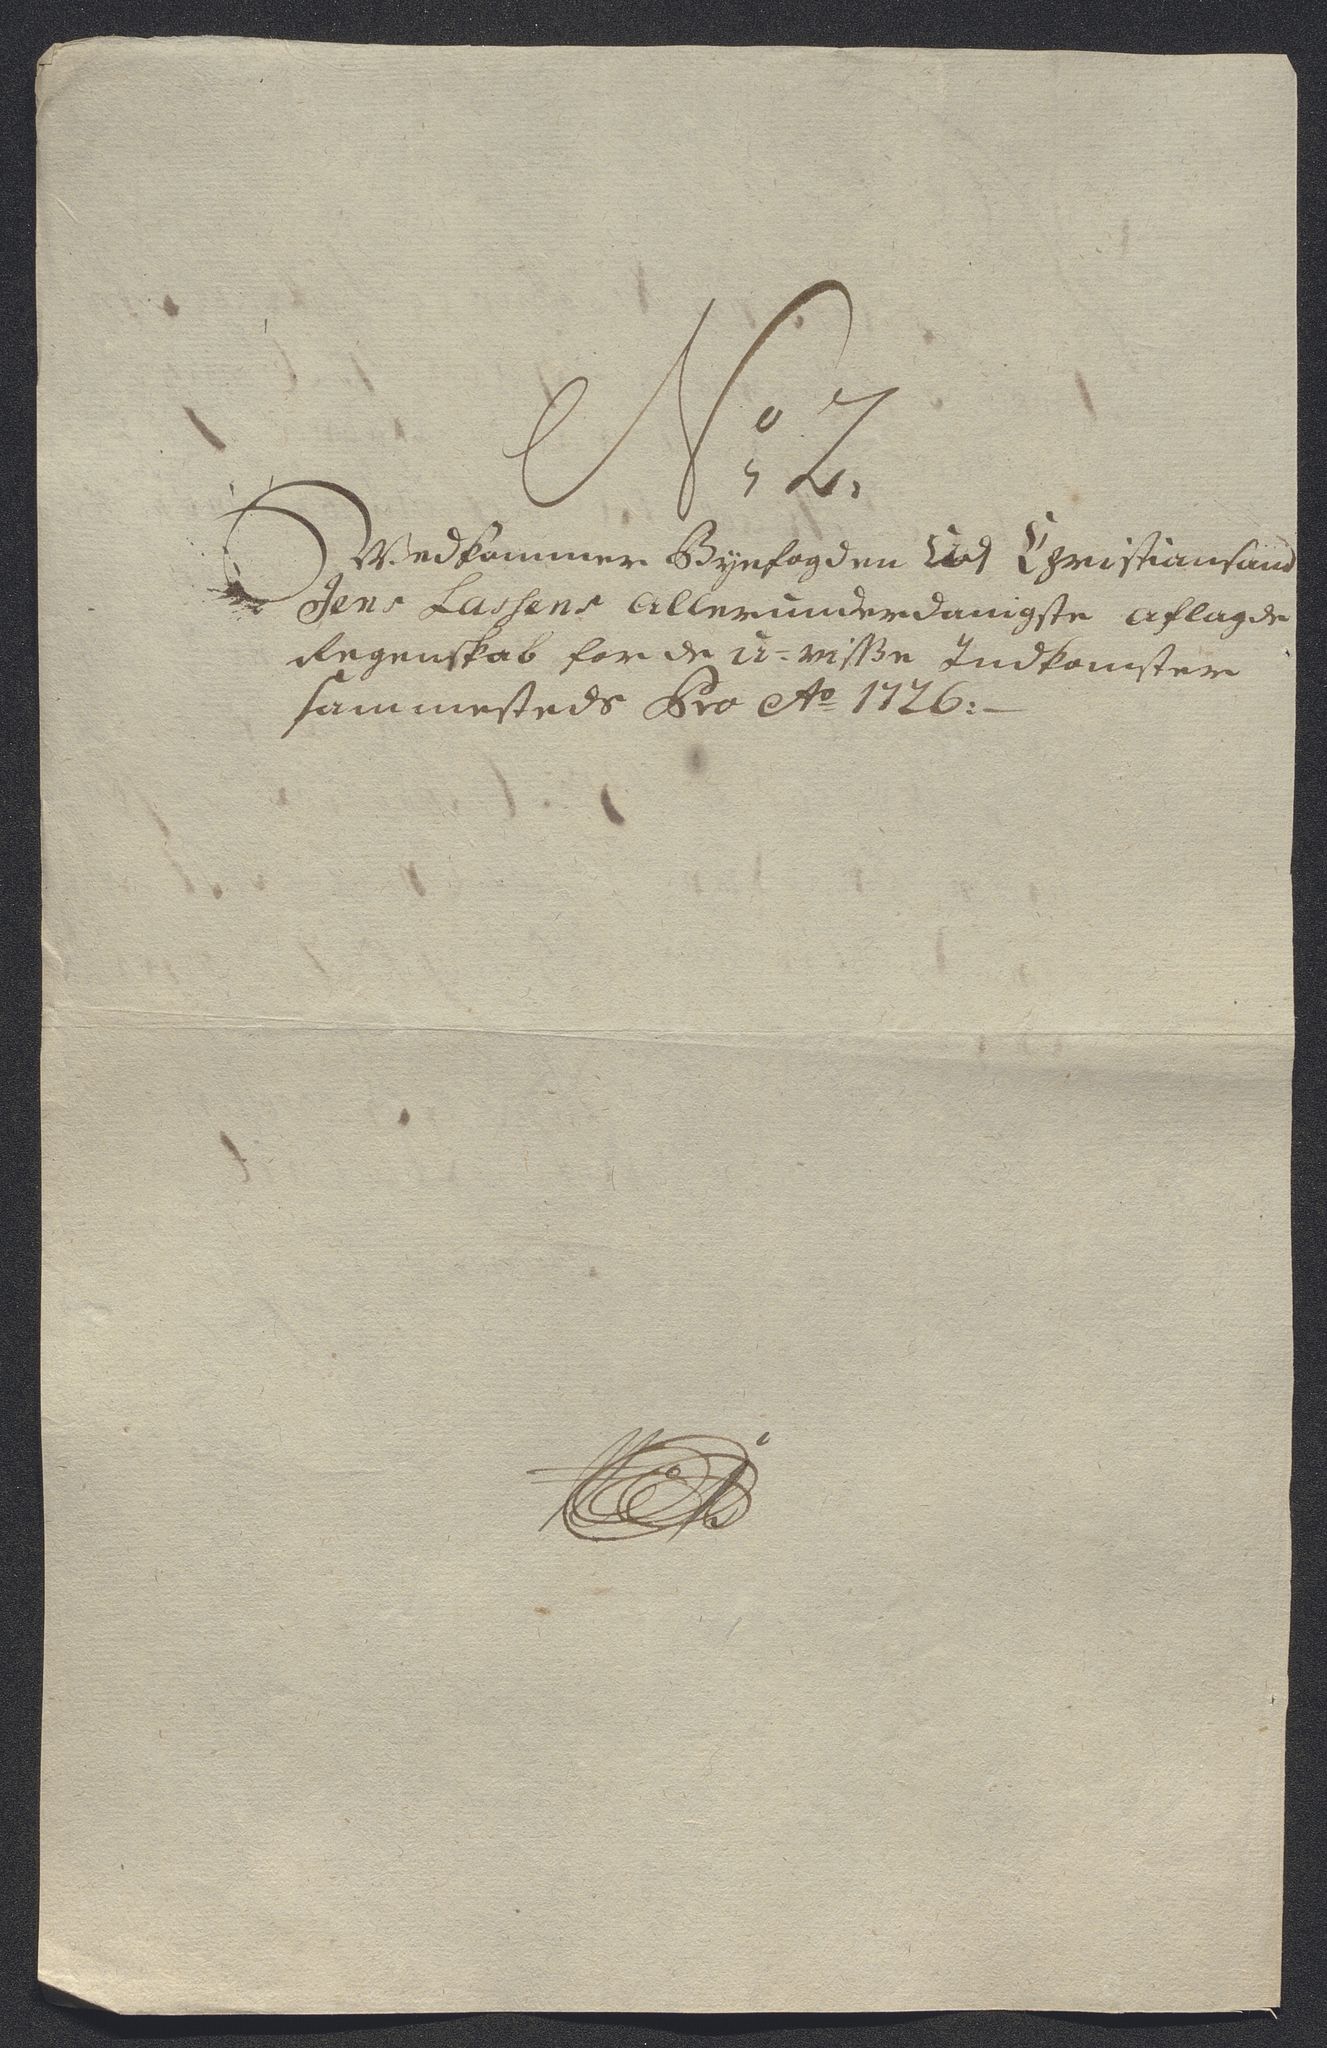 No 2.
Vedkommer Byefogden Udj Christiansand
Jens Lassens Allerunderdanigste aflagde
Regenskab for de u-visse Indkomster
sammesteds Pro Ao 1726:-